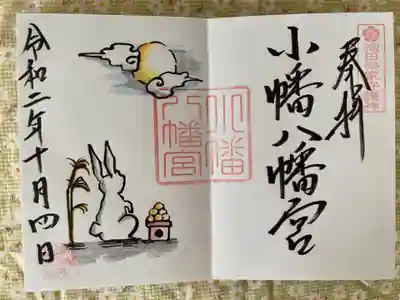 奉拝
小幡八幡宮
小幡
八幡宮
令和二年十月四日